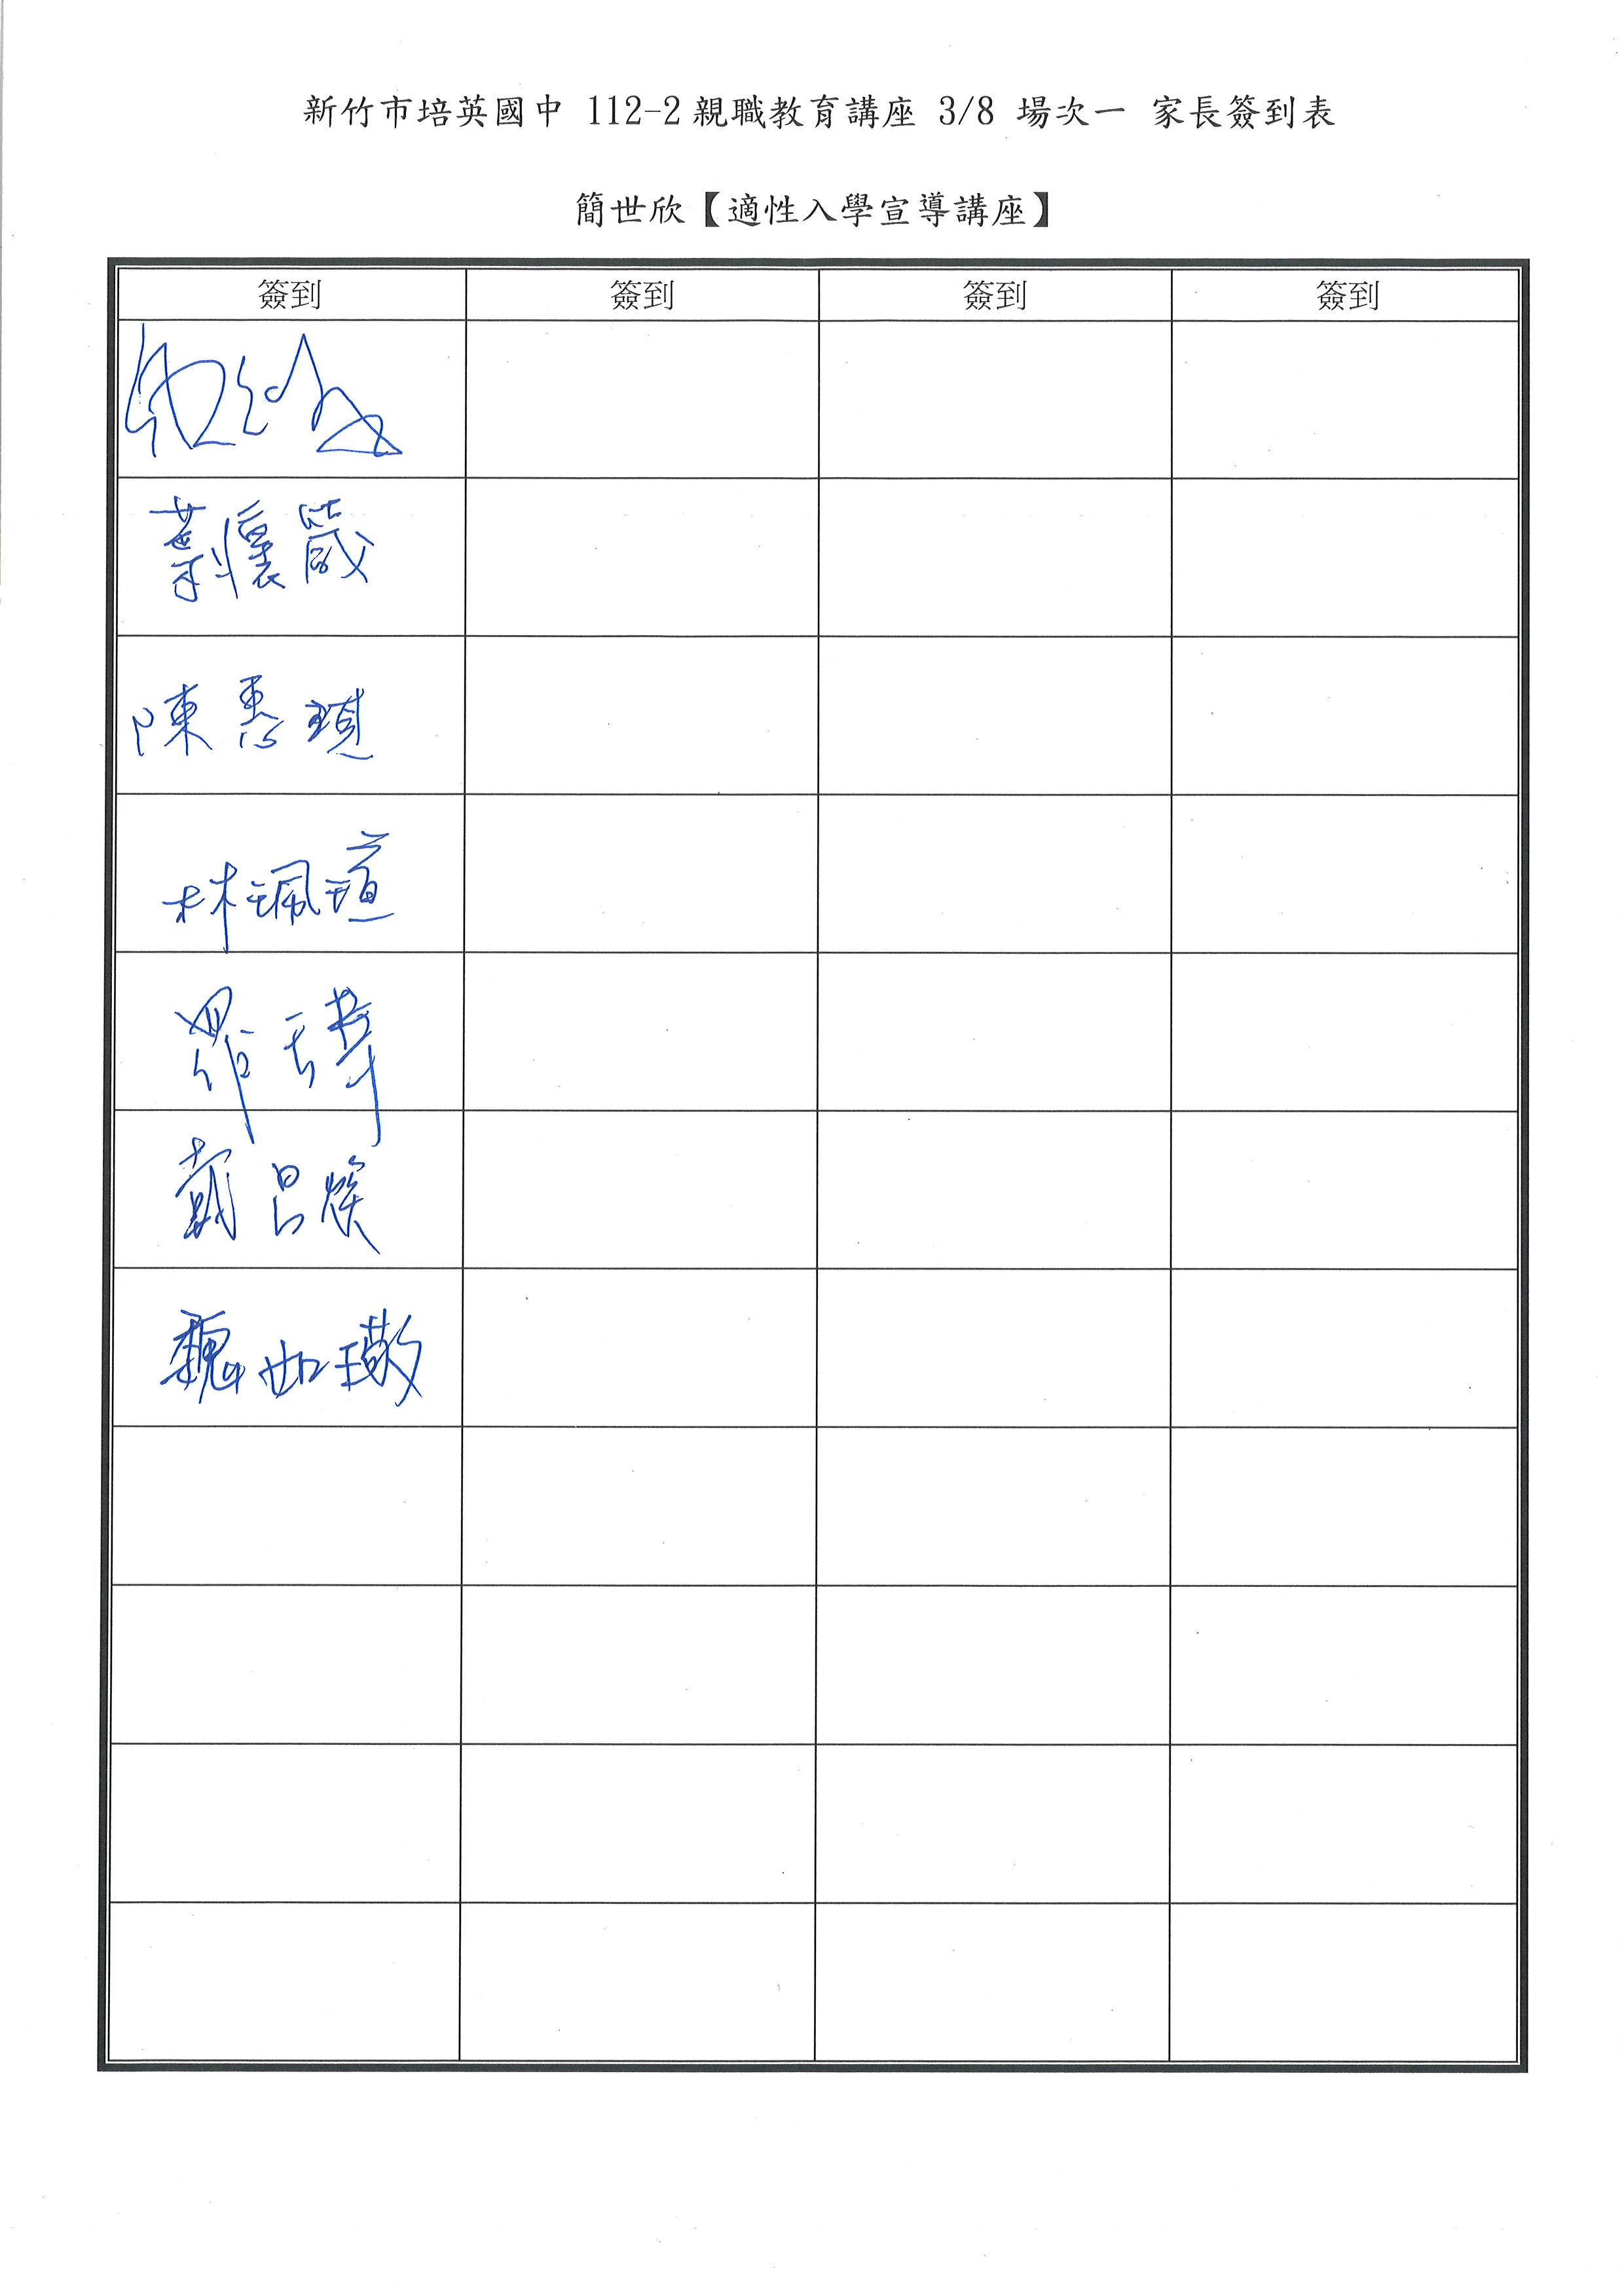 新竹市培英國中 112-2親職教育講座 3/8 場次一 家長簽到表
簡世欣【適性入學宣導講座】
簽到 簽到 簽到 簽到
葉懷箴
陳惠瑱
林珮瑄
羅瑋
戴呂煥
魏如璥